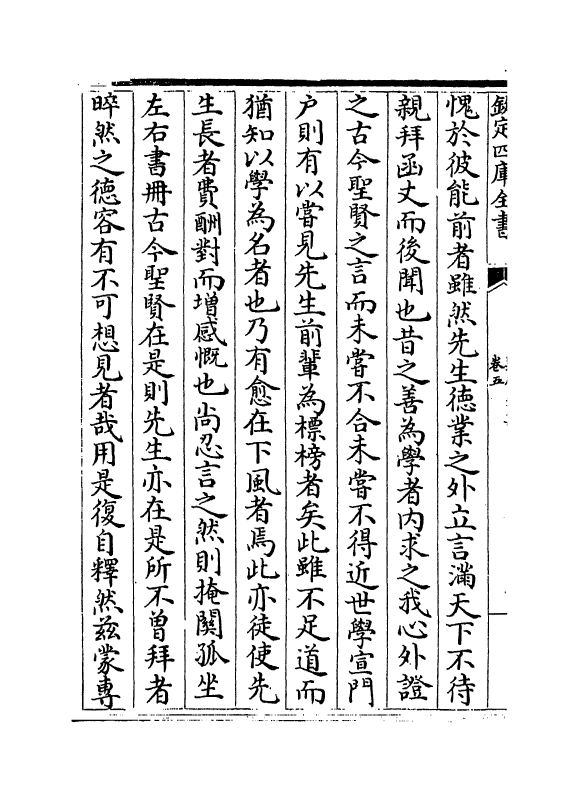 欽定四庫全書
卷五
愧於彼能前者雖然先生德業之外立言滿天下不待
親拜函丈而後聞也昔之善為學者内求之我心外證
之古今聖賢之言而未嘗不合未嘗不得近世學宣門
户則有以嘗見先生前輩為標榜者矣此雖不足道而
猶知以學為名者也乃有愈在下風者焉此亦徒使先
生長者費酬對而增感慨也尚忍言之然則掩關孤坐
左右書冊古今聖賢在是則先生亦在是所不曾拜者
睟然之德容有不可想見者哉用是復自釋然兹蒙專